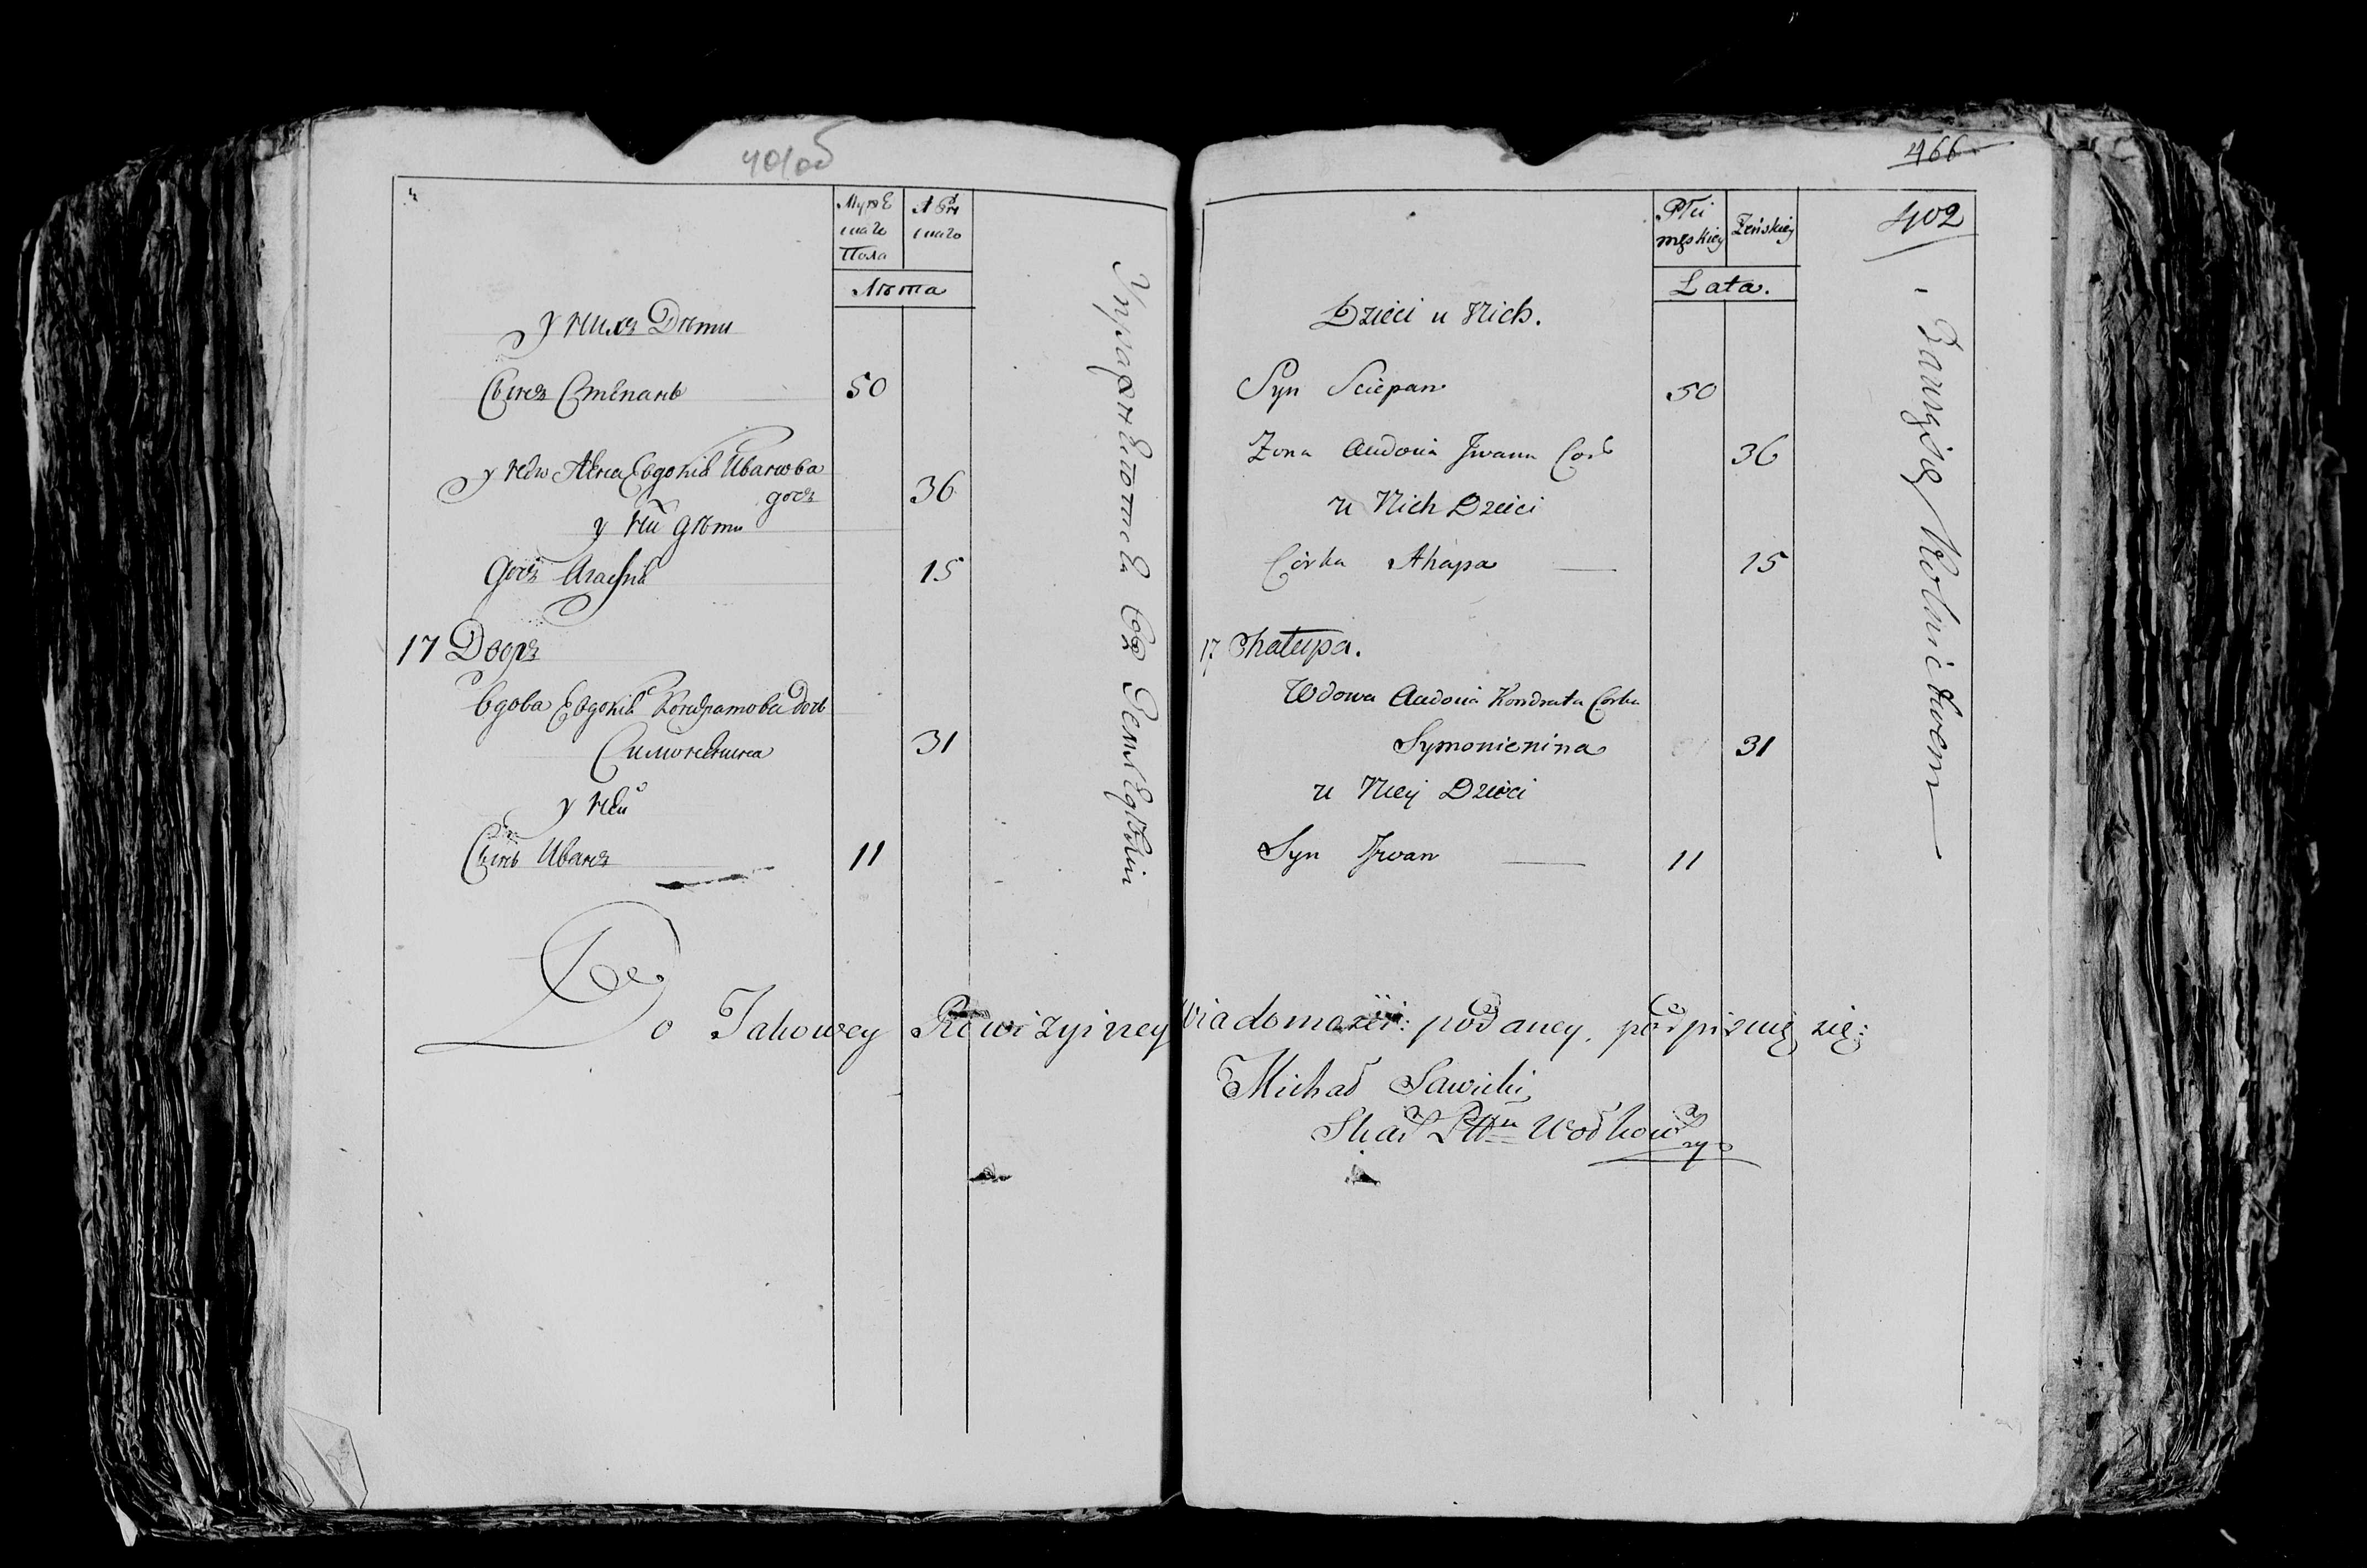 401об
Муже
скаго
Пола
Жен
скаго
Лѣта
У нихъ Дѣти
Сынъ Степанъ 50
у него Жена Евдокия Иванова
дочь 36
у них дѣти
дочь Агафия 15
17 Дворъ
Вдова Евдокия Кондратова Дочь
Симоненина 31
у Ней
Сынъ Иванъ 11
Упражняются въ Земледѣлии
466
402
Płci
męskiey
Żeńskiey
Lata.
Dzieci u Nich.
Syn Sciepan 50
Zona Audocia Jwana Cor 36
u Nich Dzieci
Córka Ahapa 15
17 Chałupa.
Wdowa Audocia Kondrata Corka
Symonienina 31
u Niey Dzieci
Syn Jwan 11
Bawią się Rolnictwem
Do Takowey Rewizyiney Wiadomości podaney, podpisuię się:
Michał Sawicki